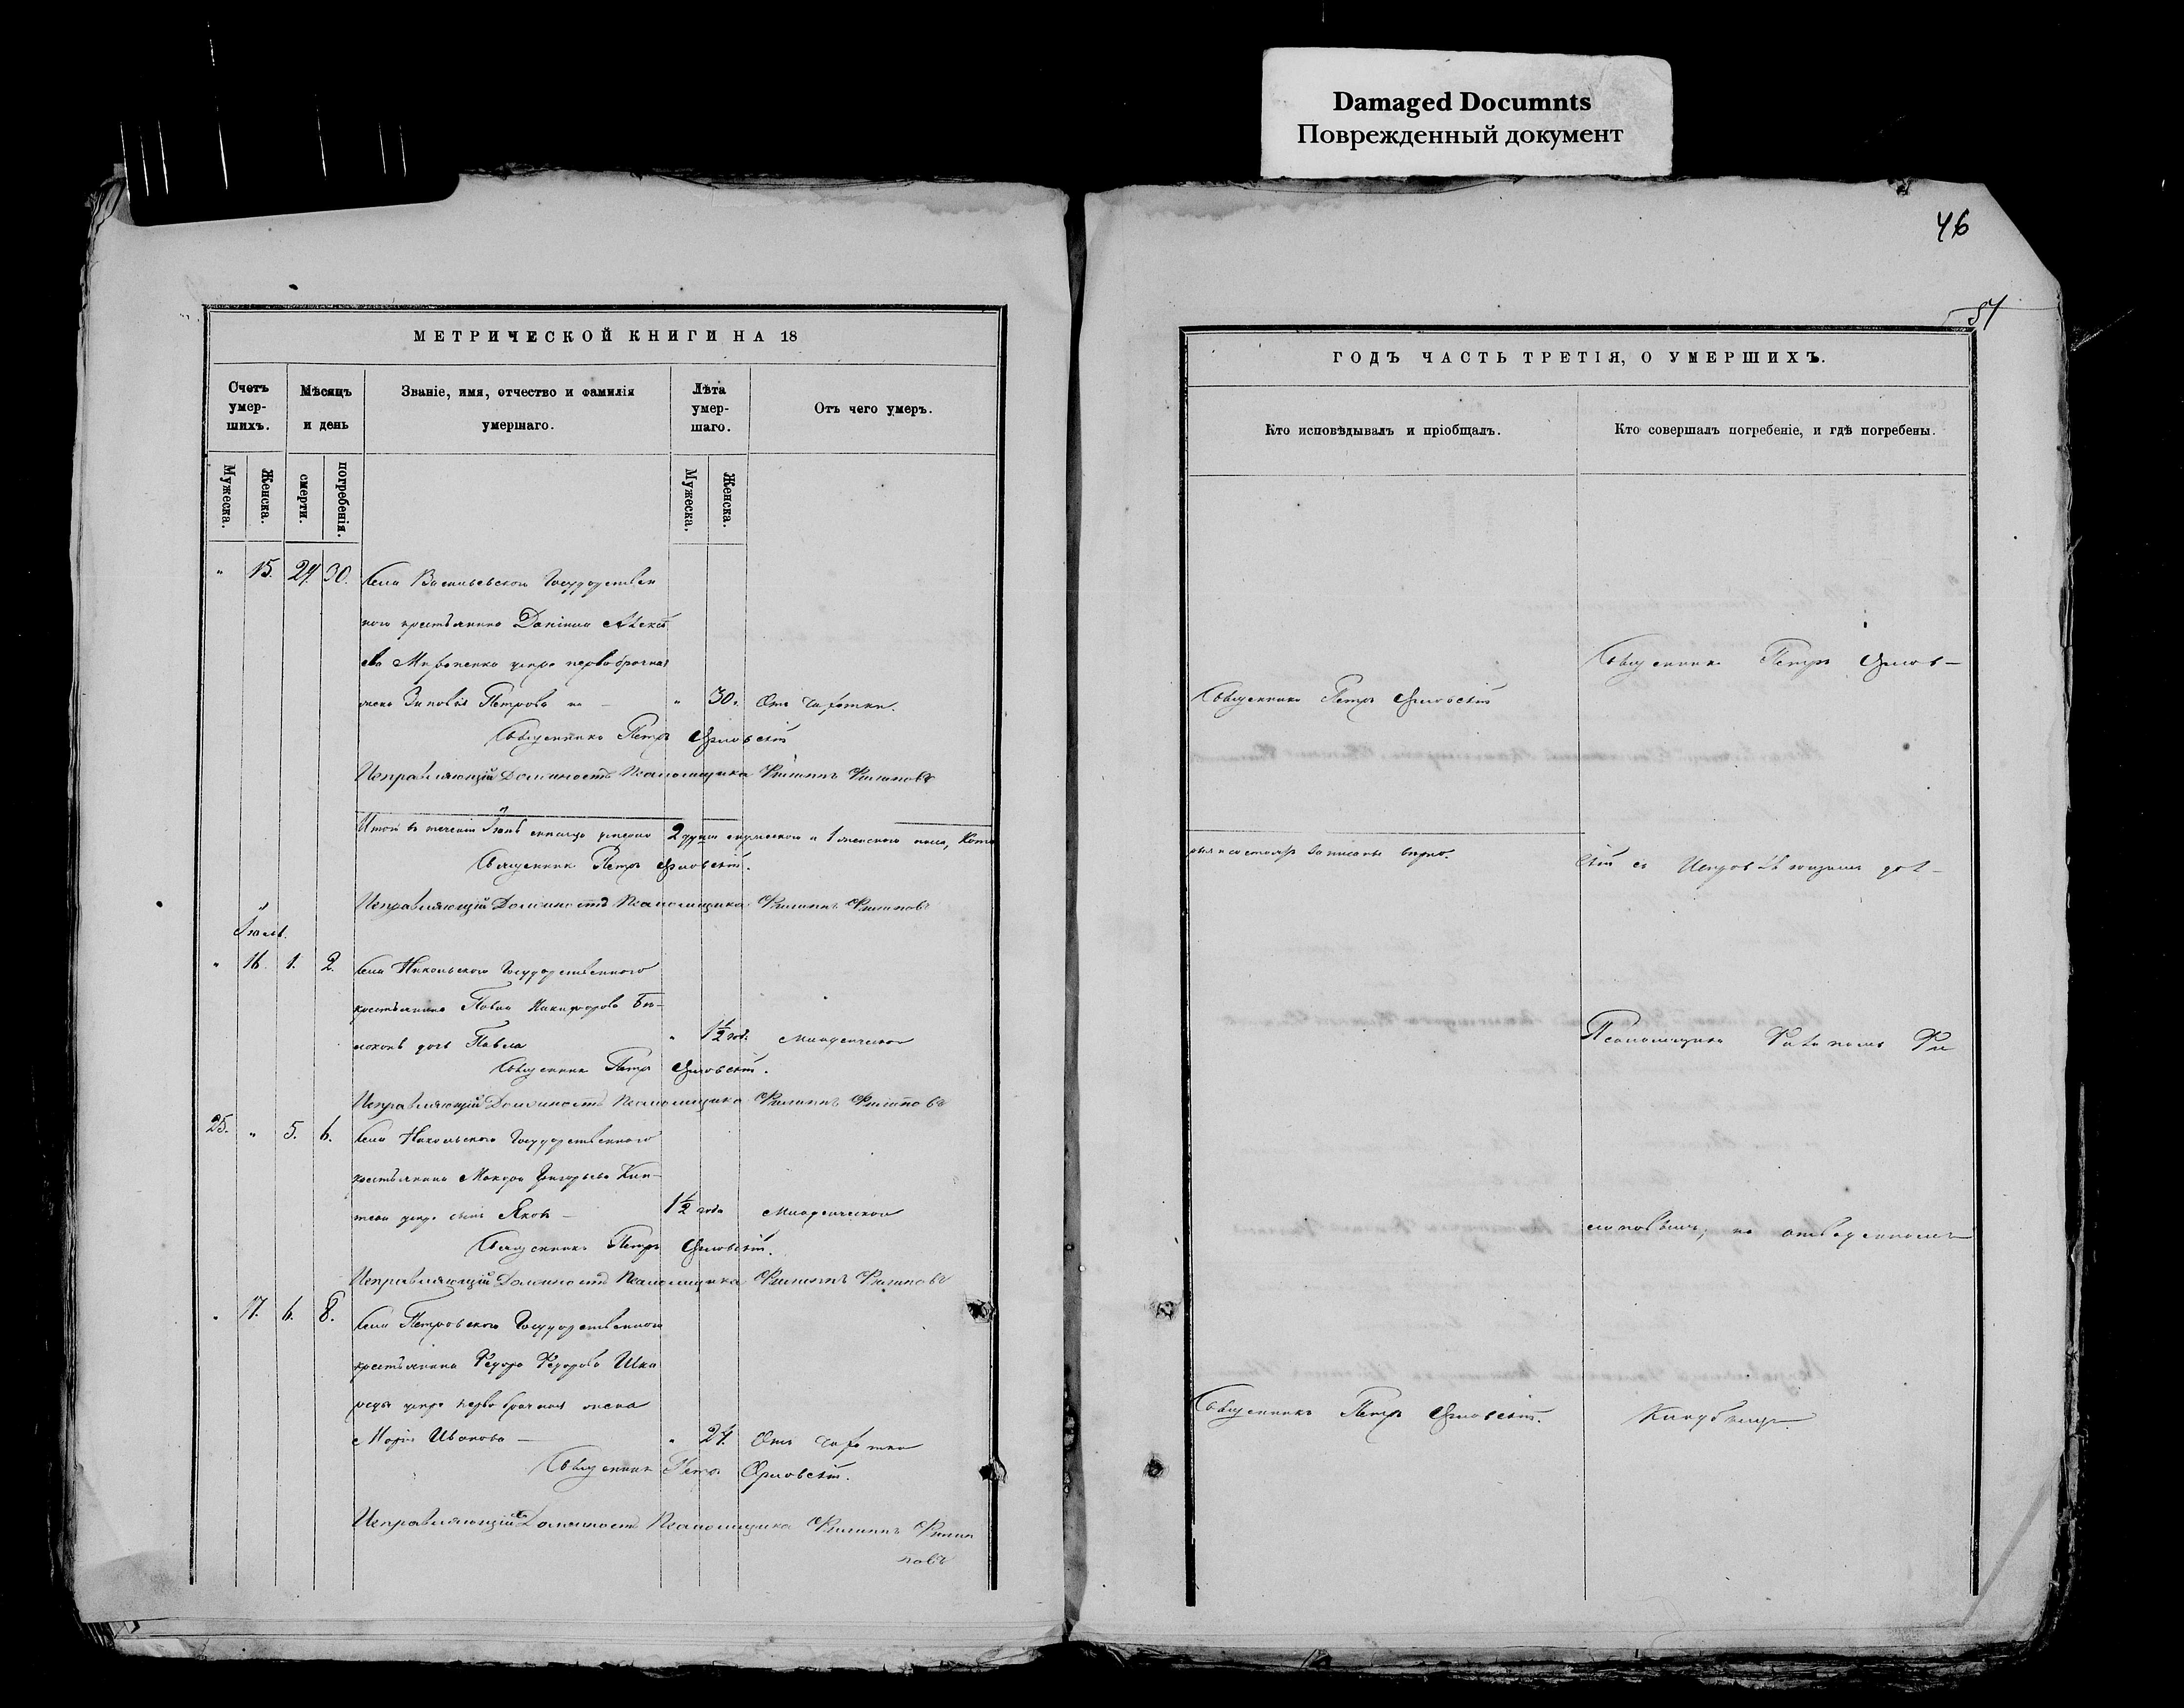 Damaged Documnts
Поврежденный документ
46
51
МЕТРИЧЕСКОЙ КНИГИ НА 18
Счетъ умер-шихъ.
Мѣсяцъ и день
Званіе, имя, отчество и фамилія умершаго.
Лѣта умер-шаго.
Отъ чего умеръ.
Мужеска.
Женска.
смерти.
погребенія.
Мужеска.
Женска.
" 15. 24. 30. Села Васильевского Государствен
ного крестьянина Даніила Алексѣ
ева Мироненка умре первобрачная
жена Зиновія Петрова " 30. Отъ чахотки.
Священникъ Петръ Орловскій
Исправляющій Должность Псаломщика Филиппъ Филиповъ
Итого въ теченіи Іюнѣ умерло 2 души мужескаго и 1 женскаго пола, Кото
Священникъ Петръ Орловскій.
Исправляющій Должность Псаломщика Филиппъ Филиповъ
Іюль.
" 16. 1. 2. Села Никольского Государственного
крестьянина Павла Никифорова Бѣ-
дочь Павла " 1½ год. Младенческой
Священникъ Петръ Орловскій.
Исправляющій Должность Псаломщика Филиппъ Филиповъ
25. " 5. 6. Села Никольского Государственного
крестьянина Макара Григорьева
умре сынъ Яковъ 1½ года Младенческой
Священникъ Петръ Орловскій.
Исправляющій Должность Псаломщика Филиппъ Филиповъ
" 17. 6. 8. Села Петровского Государственного
крестьянина Федора Федорова Шка
умре первобрачная жена
Марія Иванова " 24. Отъ чахотки
Священникъ Петръ Орловскій.
Исправляющій Должность Псаломщика Филиппъ Филип
повъ
ГОДЪ ЧАСТЬ ТРЕТІЯ, О УМЕРШИХЪ.
Кто исповѣдывалъ и пріобщалъ.
Кто совершалъ погребеніе, и гдѣ погребены.
Священникъ Петръ Орлов-
Священникъ Петръ Орловскій
записаны вѣрно.
скій съ
Псаломщика Фи
липовымъ, на отведенномъ
Священникъ Петръ Орловскій.
Кладбищѣ.